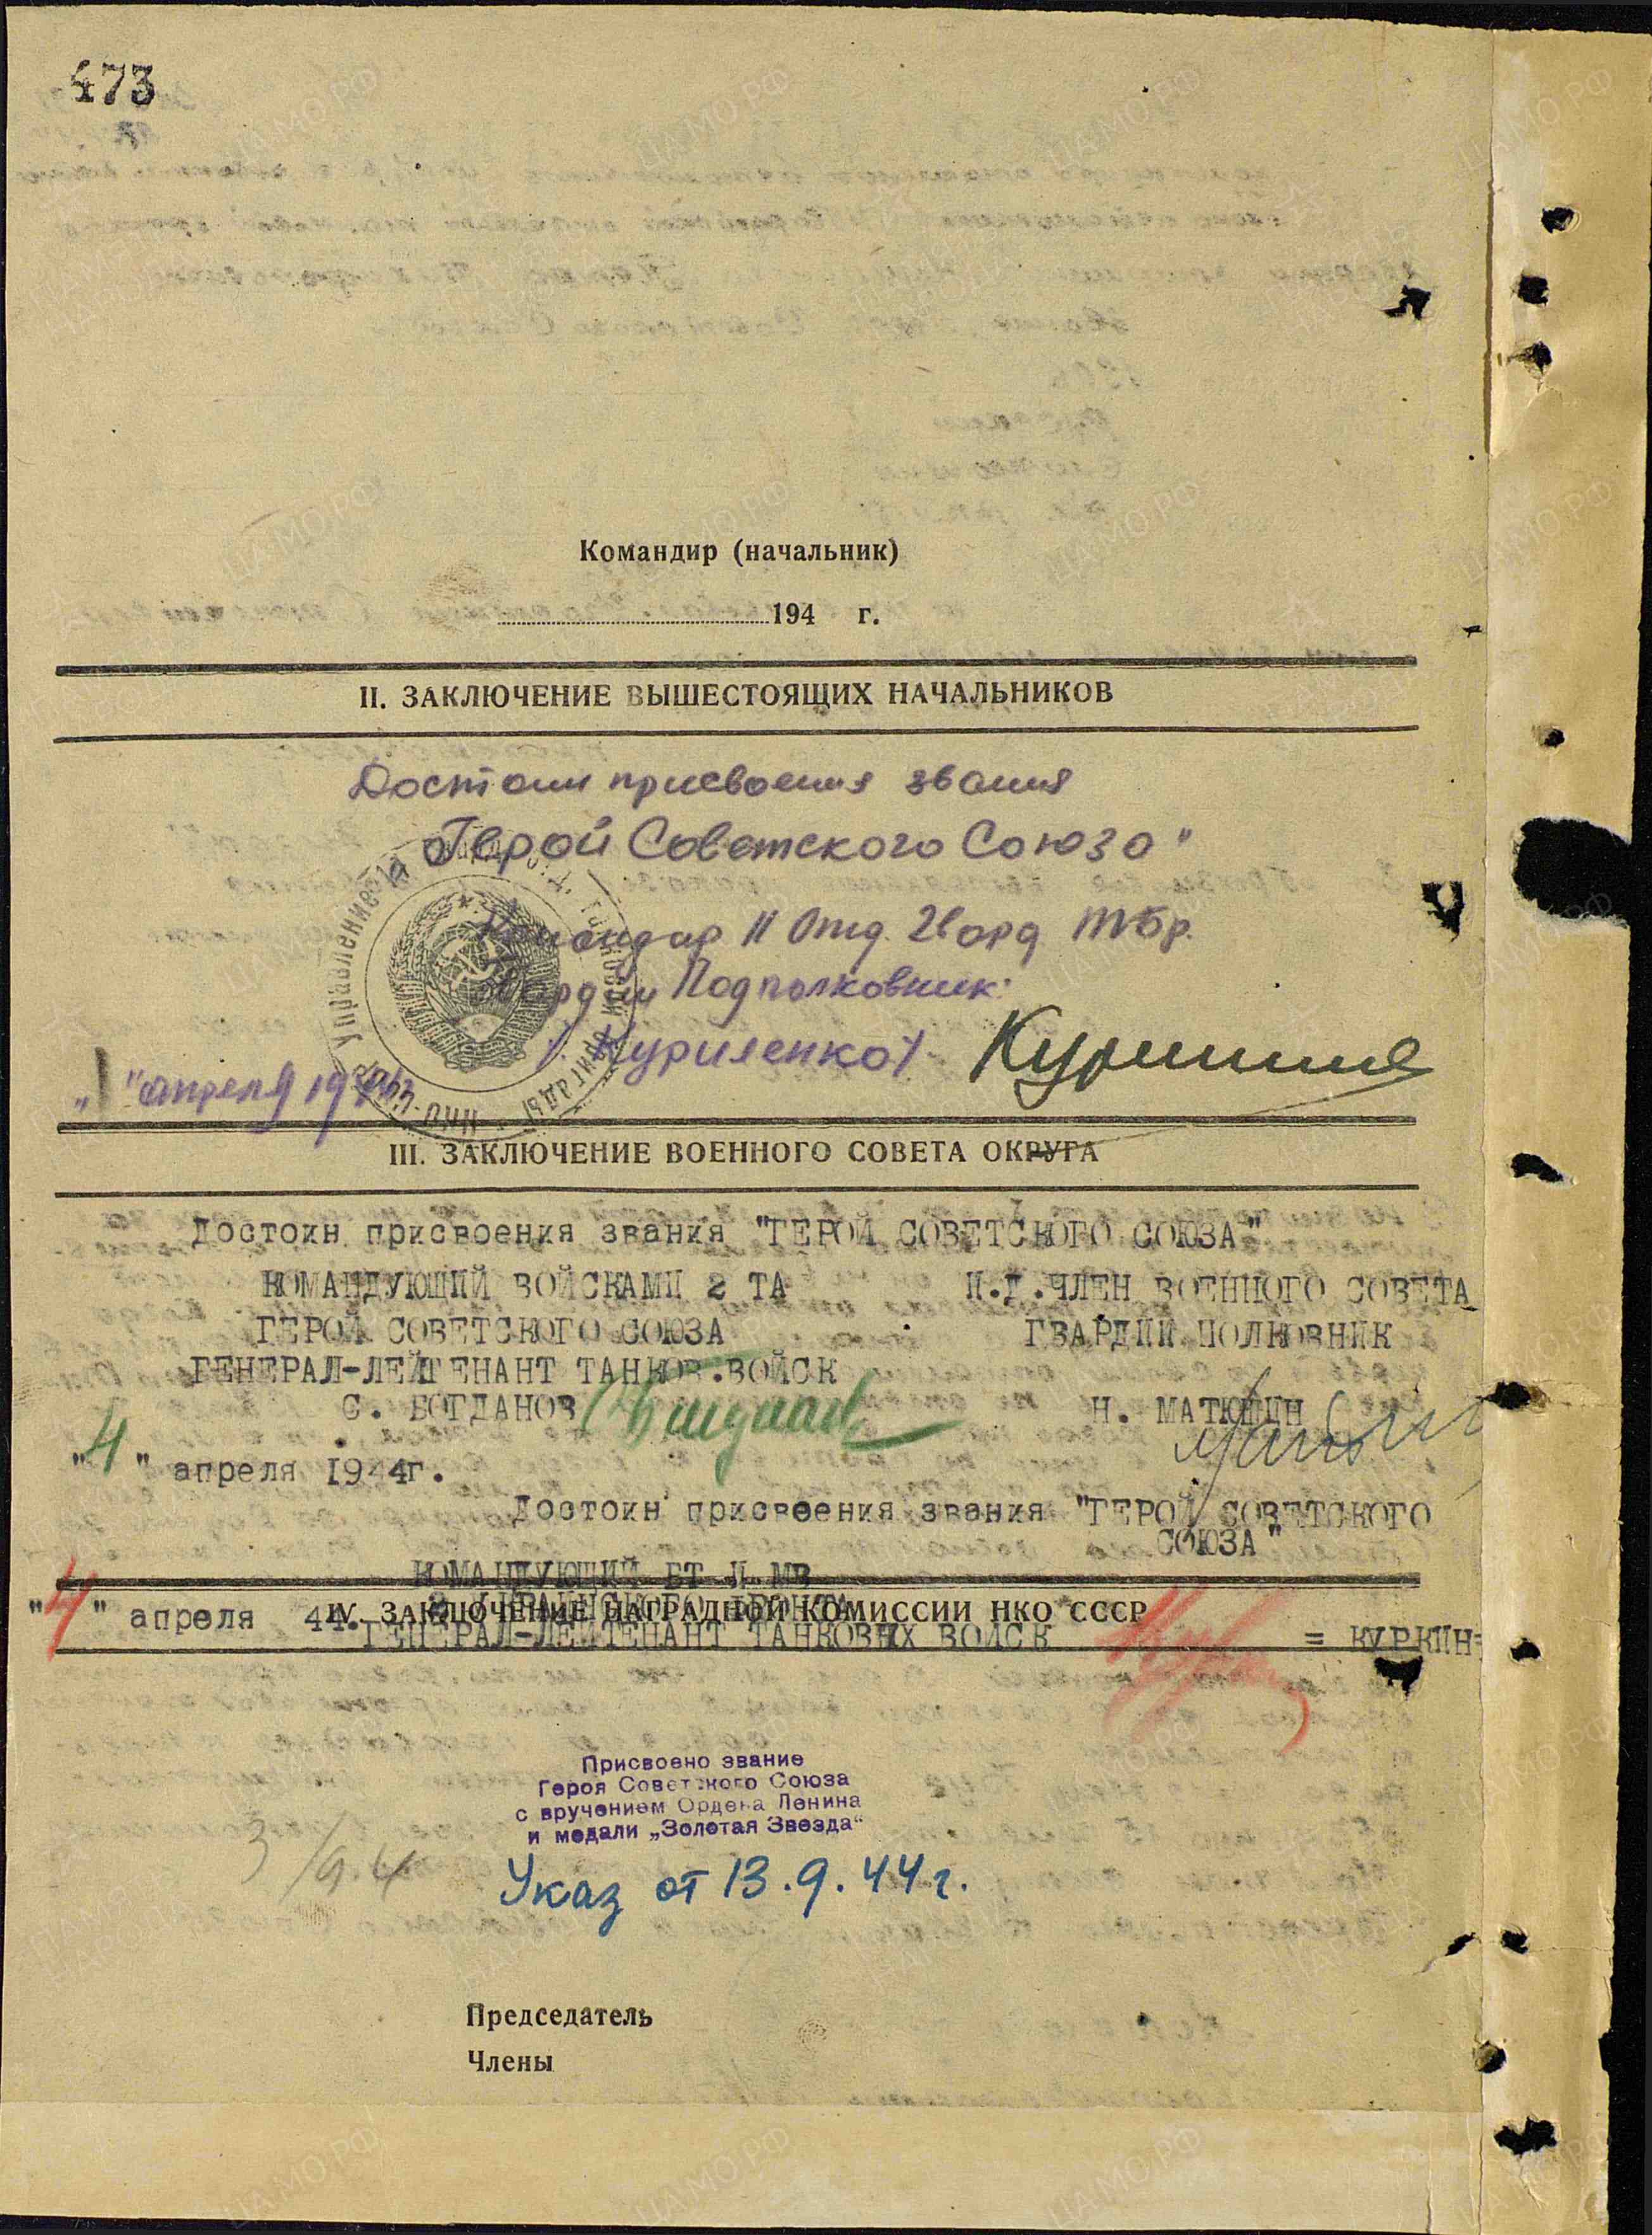 473
Командир (начальник)
194 г.
II. ЗАКЛЮЧЕНИЕ ВЫШЕСТОЯЩИХ НАЧАЛЬНИКОВ
Достоин присвоения звания
"Герой Советского Союза"
Командир 11 Отд. Гвард. ТБр.
Гвардии Подполковник:
/Куриленко/
" " апреля 194
III. ЗАКЛЮЧЕНИЕ ВОЕННОГО СОВЕТА ОКРУГА
Достоин присвоения звания "ГЕРОЙ СОВЕТСКОГО СОЮЗА"
КОМАНДУЮЩИЙ ВОЙСКАМИ 2 ТА
ГЕРОЙ СОВЕТСКОГО СОЮЗА
ГЕНЕРАЛ-ЛЕЙТЕНАНТ ТАНКОВ.ВОЙСК
С. БОГДАНОВ
И.Д.ЧЛЕН ВОЕННОГО СОВЕТА
ГВАРДИИ ПОЛКОВНИК
Н. МАТЮШИН
"4" апреля 1944г.
Достоин присвоения звания "ГЕРОЙ СОВЕТСКОГО
СОЮЗА"
КОМАНДУЮЩИЙ БТ и МВ
УКРАИНСКОГО ФРОНТА
IV. ЗАКЛЮЧЕНИЕ НАГРАДНОЙ КОМИССИИ НКО СССР
"4" апреля 44.
ГЕНЕРАЛ-ЛЕЙТЕНАНТ ТАНКОВЫХ ВОЙСК = КУРКИН=
Присвоено звание
Героя Советского Союза
с вручением Ордена Ленина
и медали „Золотая Звезда“
Указ от 13.9.44 г.
Председатель
Члены